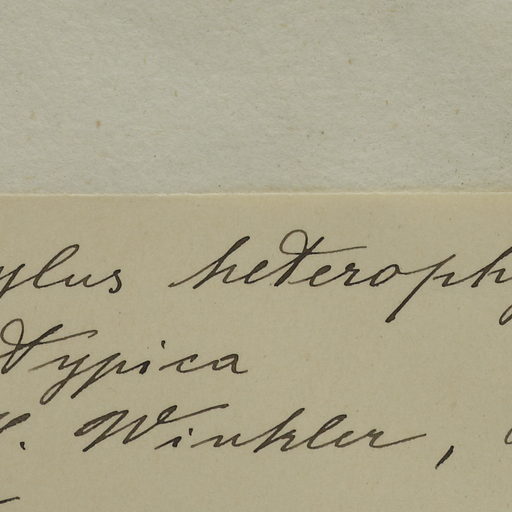 ylus heterophy
typica
H. Winkler,